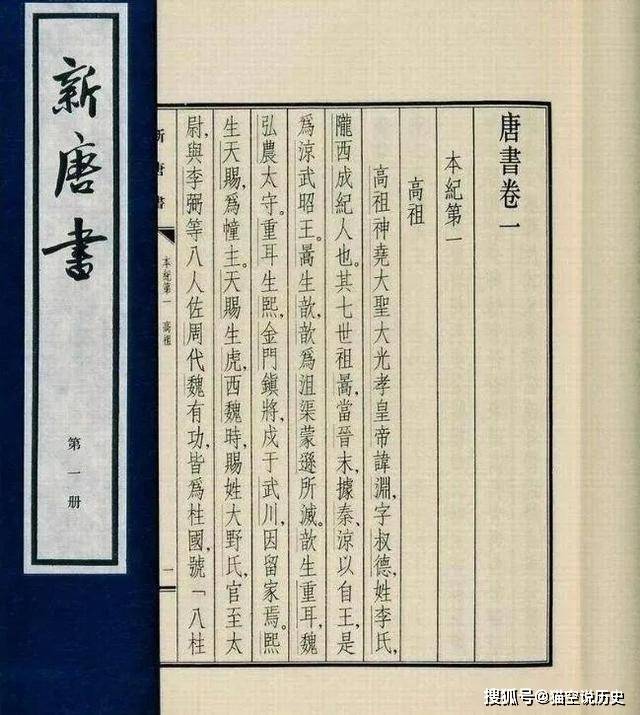 新唐書
第一册
唐書卷一
本紀第一
高祖
高祖神堯大聖大光孝皇帝諱淵,字叔德,姓李氏,
隴西成紀人也。其七世祖暠,當晉末,據秦、涼以自王,是
爲涼武昭王。暠生歆,歆爲沮渠蒙遜所滅。歆生重耳,魏
弘農太守。重耳生熙,金門鎮將,戍于武川,因留家焉。熙
生天賜,爲幢主。天賜生虎,西魏時,賜姓大野氏,官至太
尉,與李弼等八人佐周代魏有功,皆爲柱國,號「八柱
新唐書
本紀第一 高祖
一
搜狐号@猫空说历史